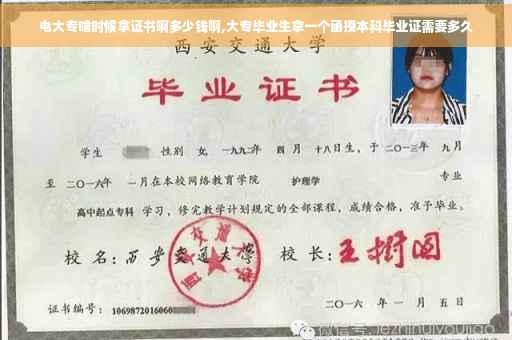 电大专啥时候拿证书啊多少钱啊,大专毕业生拿一个函授本科毕业证需要多久
西安交通大学
毕业证书
学生 性别 女, 一九九二年 四月 十八日生, 于 二〇一三年 九月
至 二〇一六年 一月在本校网络教育学院 护理学 专业
高中起点专科 学习, 修完教学计划规定的全部课程, 成绩合格, 准予毕业。
校名: 西安交通大学 校长: 王树国
西安交通大学
证书编号: 1069872016060 二〇一六年 一月 五日
微信号: jezhihuiyoujiao